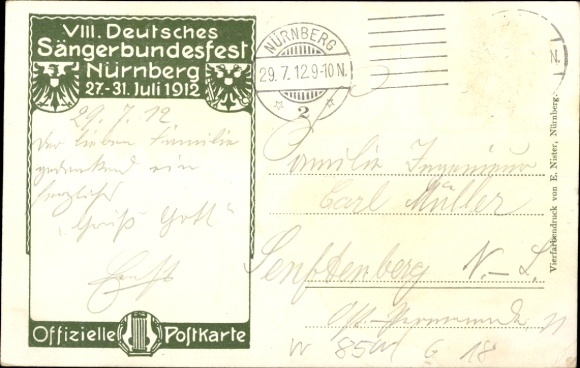 VIII. Deutsches
Sängerbundesfest
Nürnberg
27.-31. Juli 1912
29. 7. 12
Der lieben Familie
gedenkend ein
herzliches
„Grüß Gott“
Ernst
Offizielle Postkarte
NÜRNBERG
29. 7. 12. 9-10 N.
2
N.
Familie Ingenieur
Carl Müller
Senftenberg N.-L.
W 85 M G 18
Vierfarbendruck von E. Nister, Nürnberg.